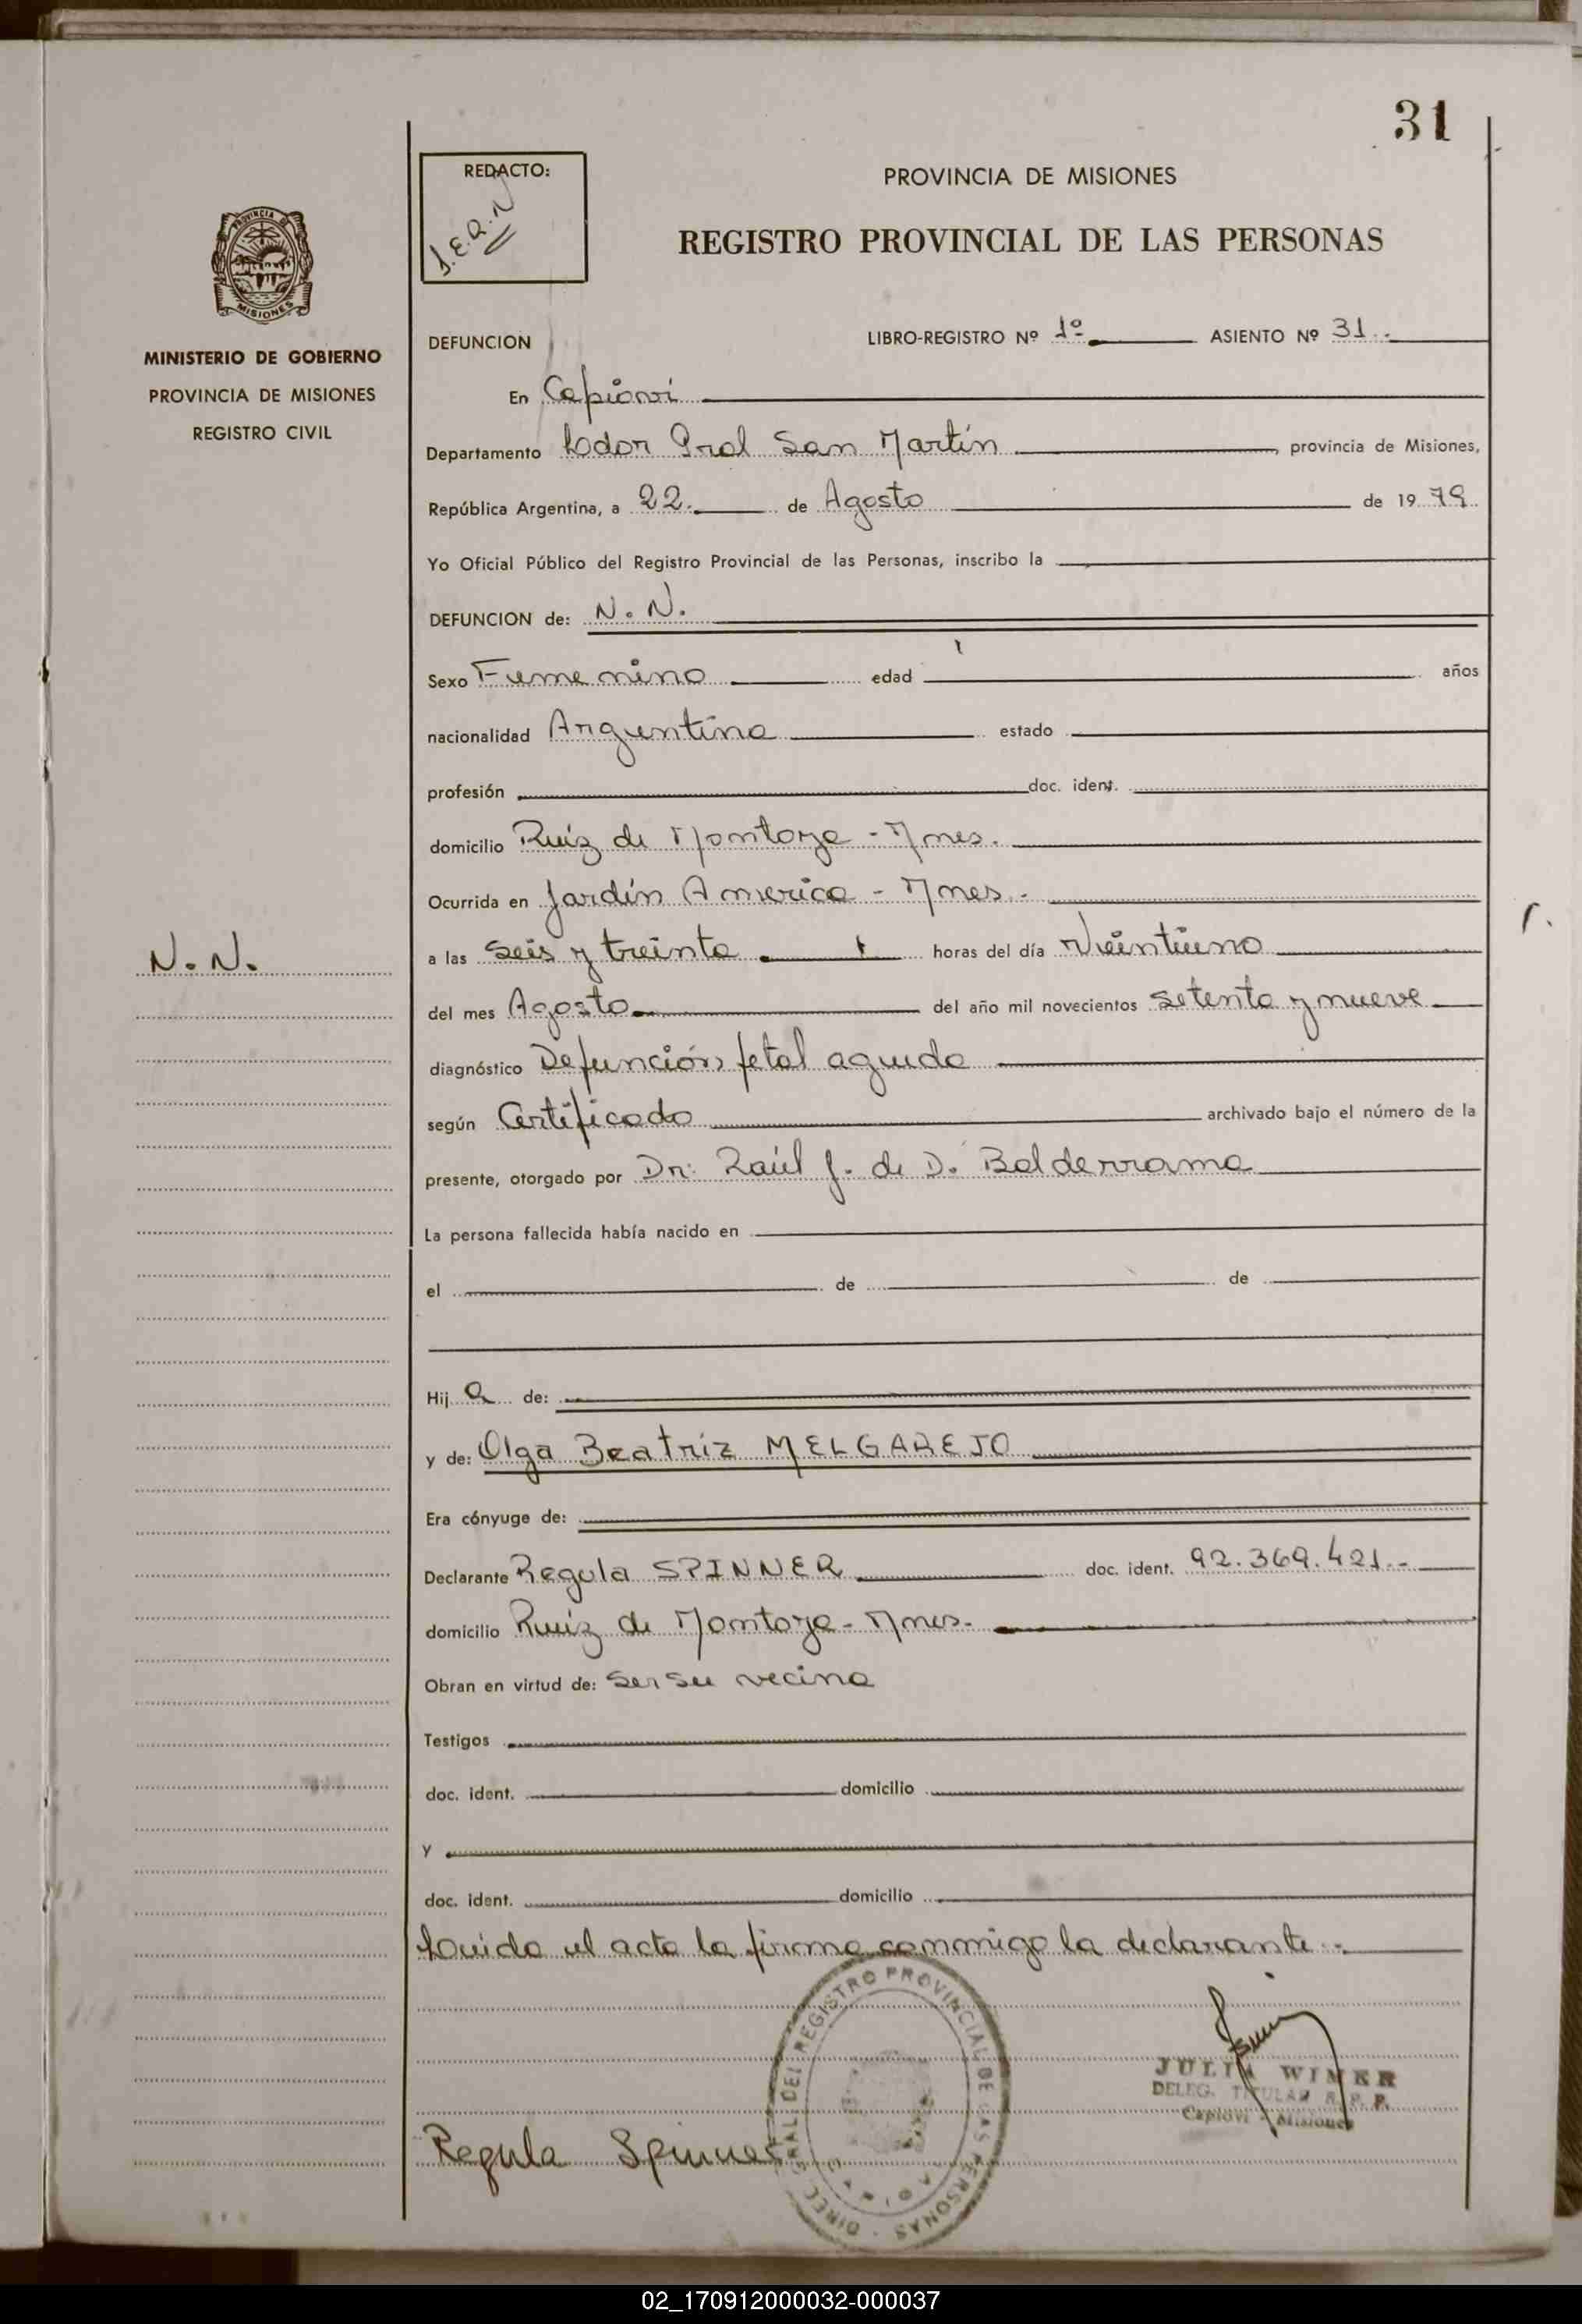 31
REDACTO:
J.E.Q.N
PROVINCIA DE MISIONES
REGISTRO PROVINCIAL DE LAS PERSONAS
PROVINCIA DE
MISIONES
MINISTERIO DE GOBIERNO
PROVINCIA DE MISIONES
REGISTRO CIVIL
DEFUNCION LIBRO-REGISTRO Nº 1º ASIENTO Nº 31.-
En Capioví
Departamento Ldor Gral San Martín, provincia de Misiones,
República Argentina, a 22. de Agosto de 1979.
Yo Oficial Público del Registro Provincial de las Personas, inscribo la
DEFUNCION de: N. N.
Sexo Femenino edad años
nacionalidad Argentina estado
profesión doc. ident.
domicilio Ruiz de Montoya - Mnes.
Ocurrida en Jardín America - Mnes.-
N. N.
a las seis y treinta horas del día Veintiuno
del mes Agosto del año mil novecientos setenta y nueve
diagnóstico Defunción fetal aguda
según Certificado archivado bajo el número de la
presente, otorgado por Dr: Raúl J. de D. Balderrama
La persona fallecida había nacido en
el de de
Hija de:
y de: Olga Beatriz MELGAREJO
Era cónyuge de:
Declarante Regula SPINNER doc. ident. 92.369.421.-
domicilio Ruiz de Montoya - Mnes.
Obran en virtud de: ser su vecina
Testigos
doc. ident. domicilio
y
doc. ident. domicilio
Leída el acta la firma conmigo la declarante.-
DIREC. GRAL. DEL REGISTRO PROVINCIAL DE LAS PERSONAS
JULIA WINKR
DELEG. TITULAR R. P. P.
Capiovi - Misiones
Regula Spinner
02_170912000032-000037